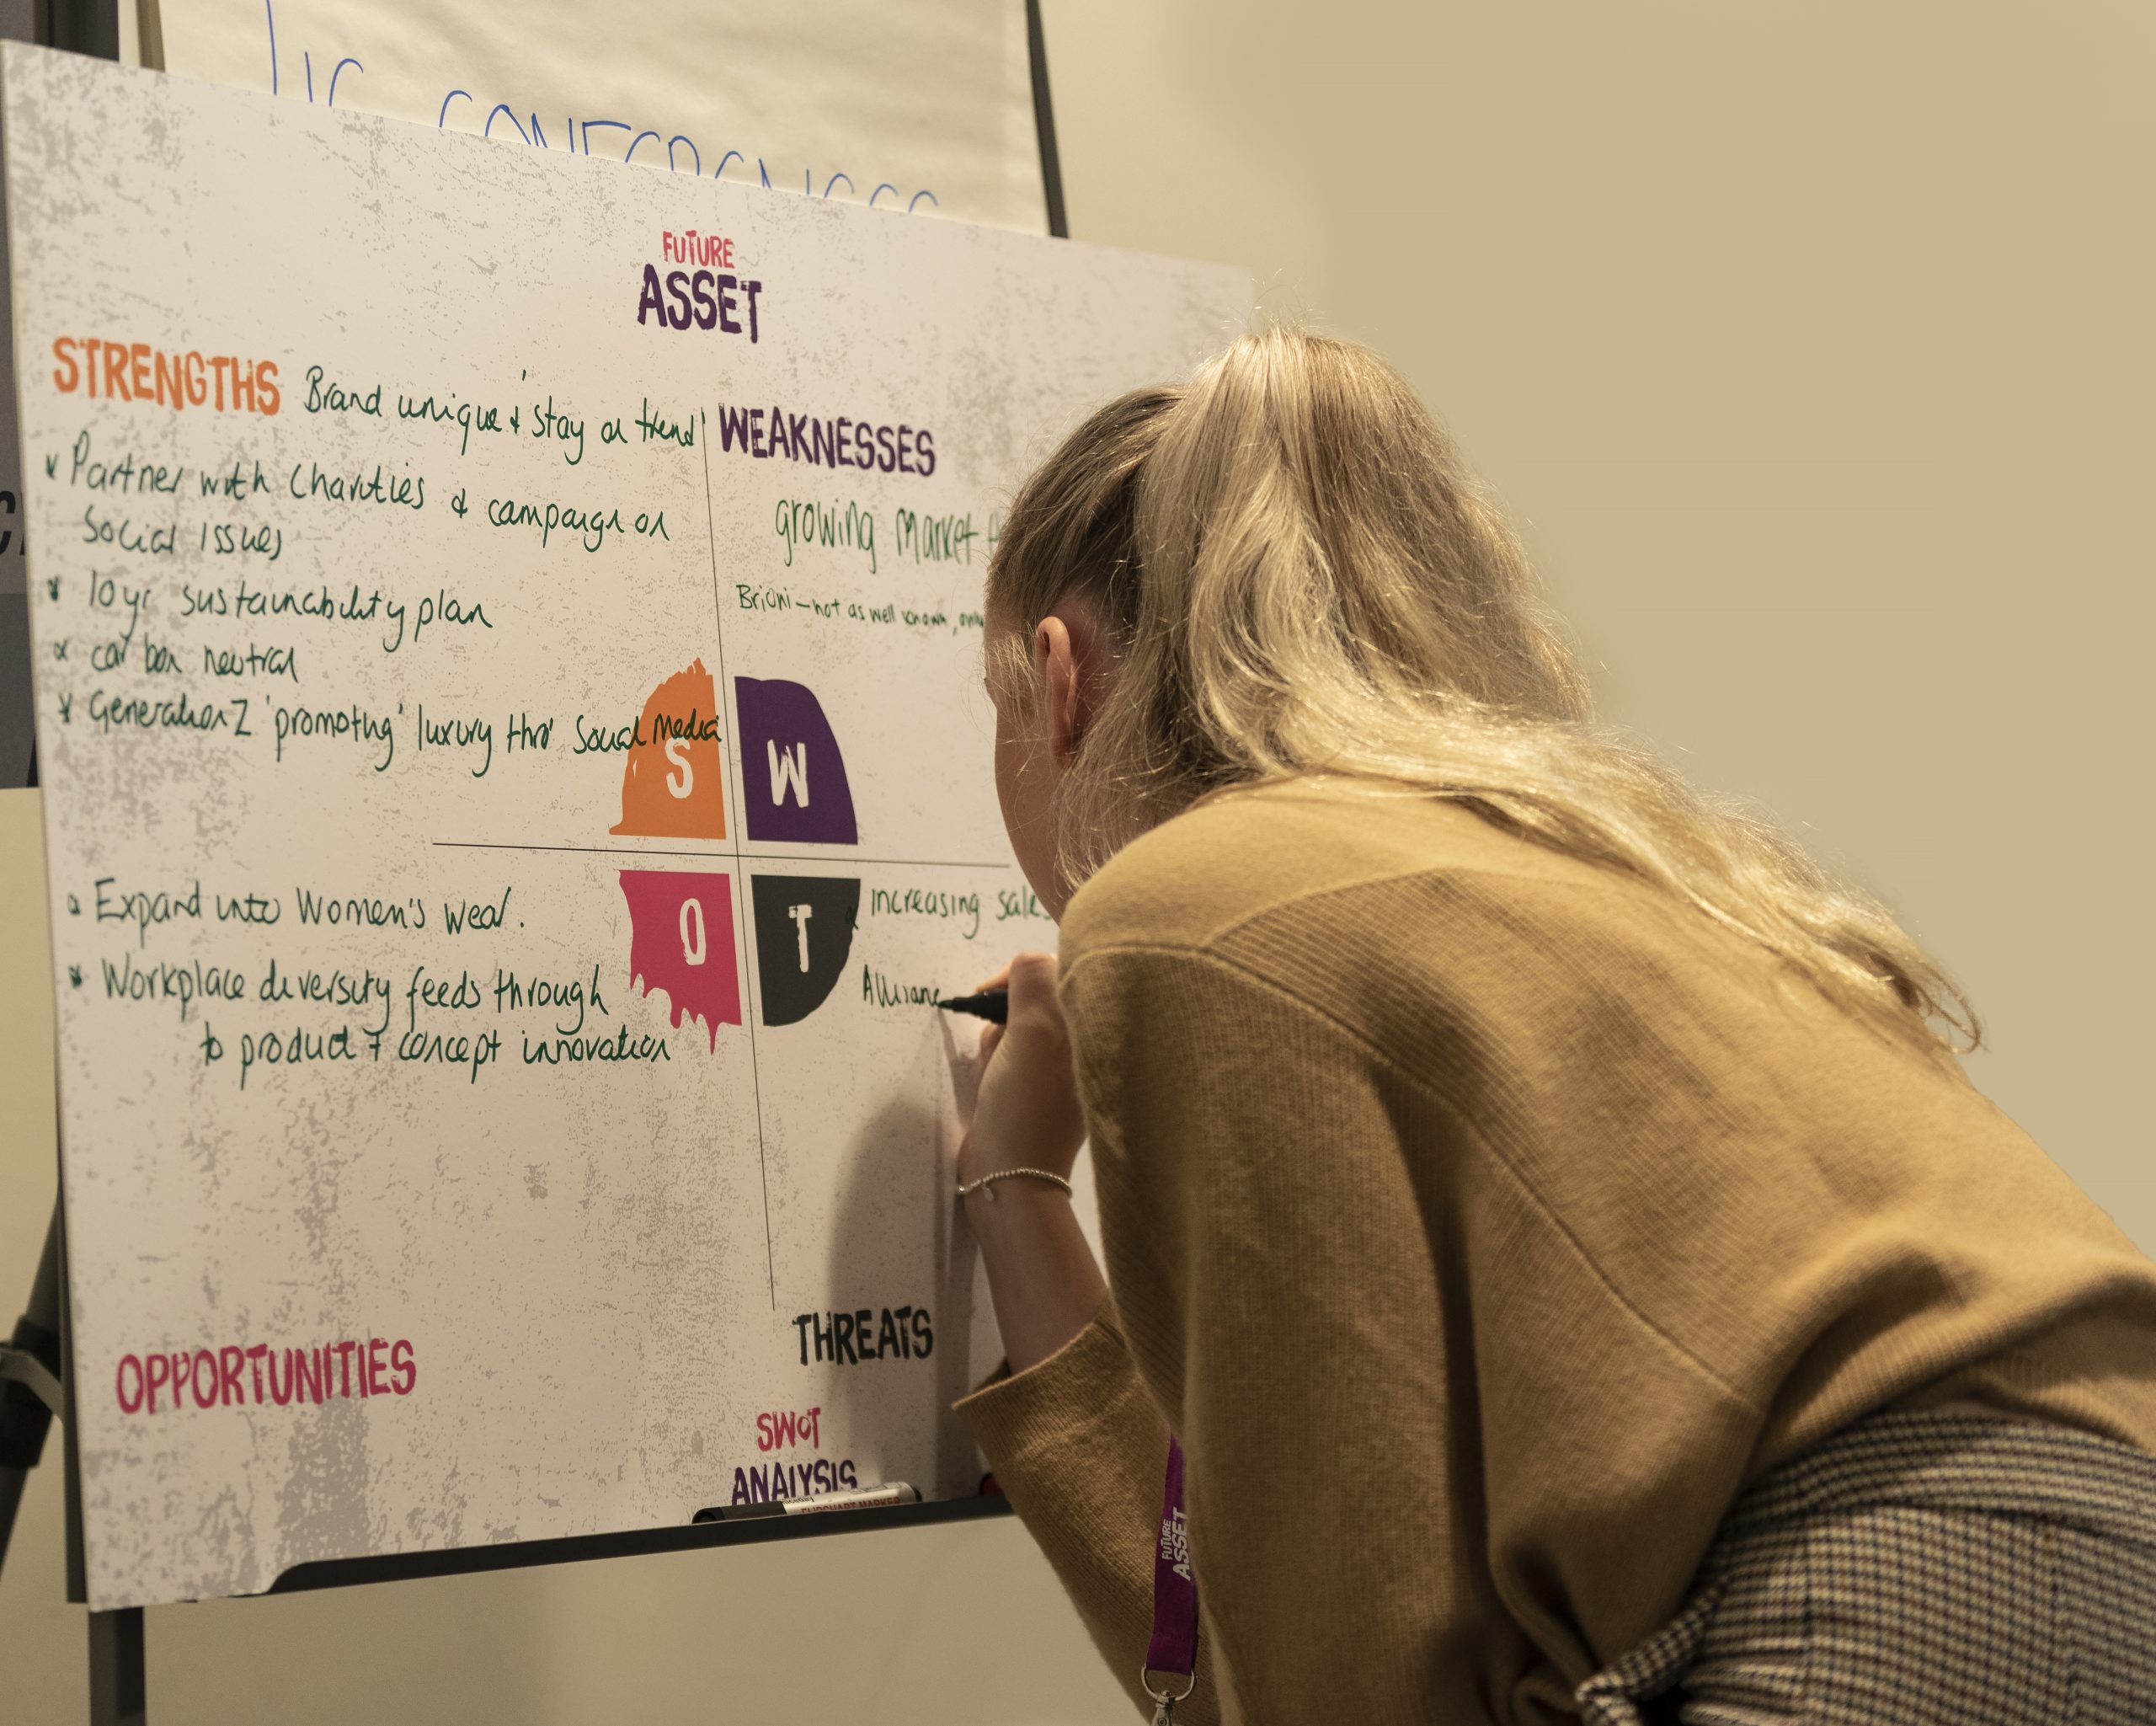 CONFERENCES
FUTURE
ASSET
STRENGTHS Brand unique & 'stay on trend'
WEAKNESSES
Partner with Charities & campaign on
Social Issues
10yr sustainability plan
carbon neutral
Generation Z 'promoting' luxury thro' Social Media
growing market
Brioni – not as well known, only
S
W
O
T
Expand into Women's wear.
Workplace diversity feeds through
to product + concept innovation
increasing sales
Allianc
OPPORTUNITIES
THREATS
SWOT
ANALYSIS
FLIPCHART MARKER
FUTURE
ASSET